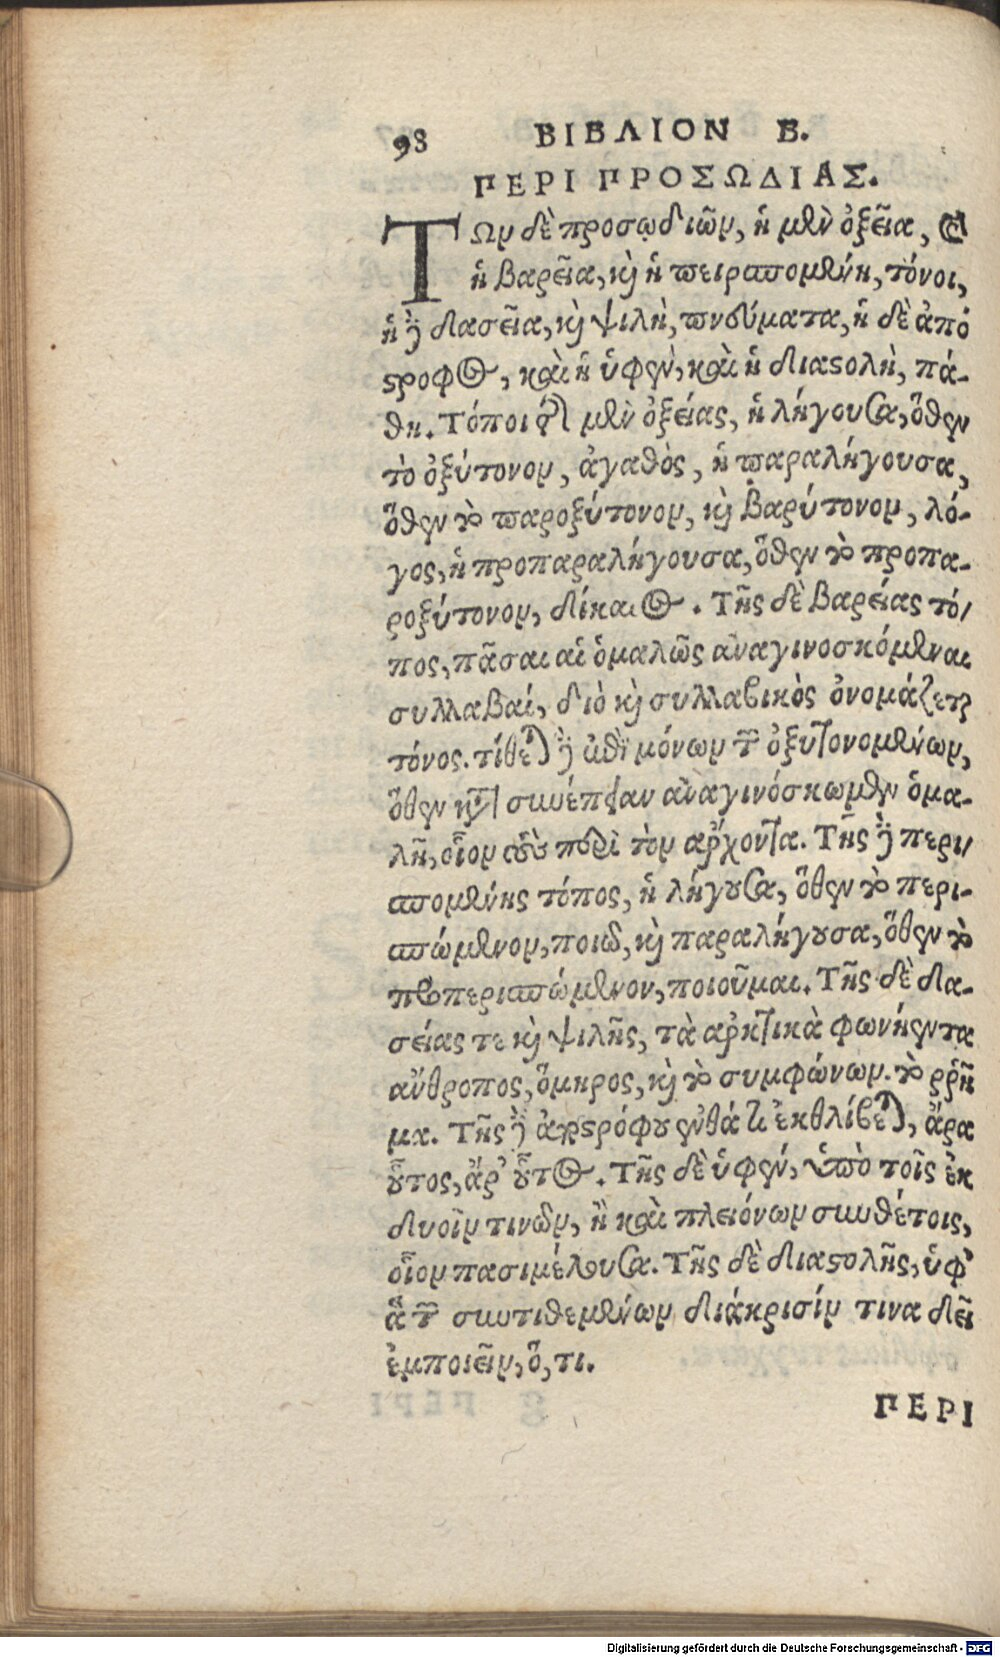 98 ΒΙΒΛΙΟΝ Β.
ΠΕΡΙ ΠΡΟΣΩΔΙΑΣ.
ΤΩν δὲ προσῳδιῶν, ἡ μὲν ὀξεῖα, καὶ
ἡ βαρεῖα, καὶ ἡ περισπομένη, τόνοι,
ἡ δὲ δασεῖα, καὶ ψιλὴ, πνεύματα, ἡ δὲ ἀπό
στροφος, καὶ ἡ ὑφὲν, καὶ ἡ διαστολὴ, πά-
θη. Τόποι δὲ μὲν ὀξείας, ἡ λήγουσα, ὅθεν
τὸ ὀξύτονον, ἀγαθὸς, ἡ παραλήγουσα,
ὅθεν τὸ παροξύτονον, καὶ βαρύτονον, λό-
γος, ἡ προπαραλήγουσα, ὅθεν τὸ προπα-
ροξύτονον, δίκαιος. Τῆς δὲ βαρείας τό-
πος, πᾶσαι αἱ ὁμαλῶς ἀναγινοσκόμεναι
συλλαβαί, διὸ καὶ συλλαβικὸς ὀνομάζεται
τόνος. τίθεται δὲ ἐπὶ μόνων τῶν ὀξυτονομένων,
ὅθεν κατὰ συνέπειαν ἀναγινόσκωμεν ὁμα-
λῆ, οἷον παρὰ τὸν ἄρχοντα. Τῆς δὲ περι-
σπομένης τόπος, ἡ λήγουσα, ὅθεν τὸ περι-
σπώμενον, ποιῶ, καὶ παραλήγουσα, ὅθεν τὸ
προπερισπώμενον, ποιοῦμαι. Τῆς δὲ δα-
σείας τε καὶ ψιλῆς, τὰ ἀρκτικὰ φωνήεντα
ἄνθροπος, ὅμηρος, καὶ τὸ συμφώνων. τὸ ρ ῥῆ
μα. Τῆς δὲ ἀποστρόφου ἔνθά τι ἐκθλίβεται, ἄρα
οὗτος, ἄρ' οὗτος. Τῆς δὲ ὑφέν, ὑπὸ τοῖς ἐκ
δυοῖν τινῶν, ἢ καὶ πλειόνων συνθέτοις,
οἷον πασιμέλουσα. Τῆς δὲ διαστολῆς, ὑφ'
ἃ τῶν συντιθεμένων διάκρισίν τινα δεῖ
ἐμποιεῖν, ὅ, τι.
ΠΕΡΙ
Digitalisierung gefördert durch die Deutsche Forschungsgemeinschaft - DFG